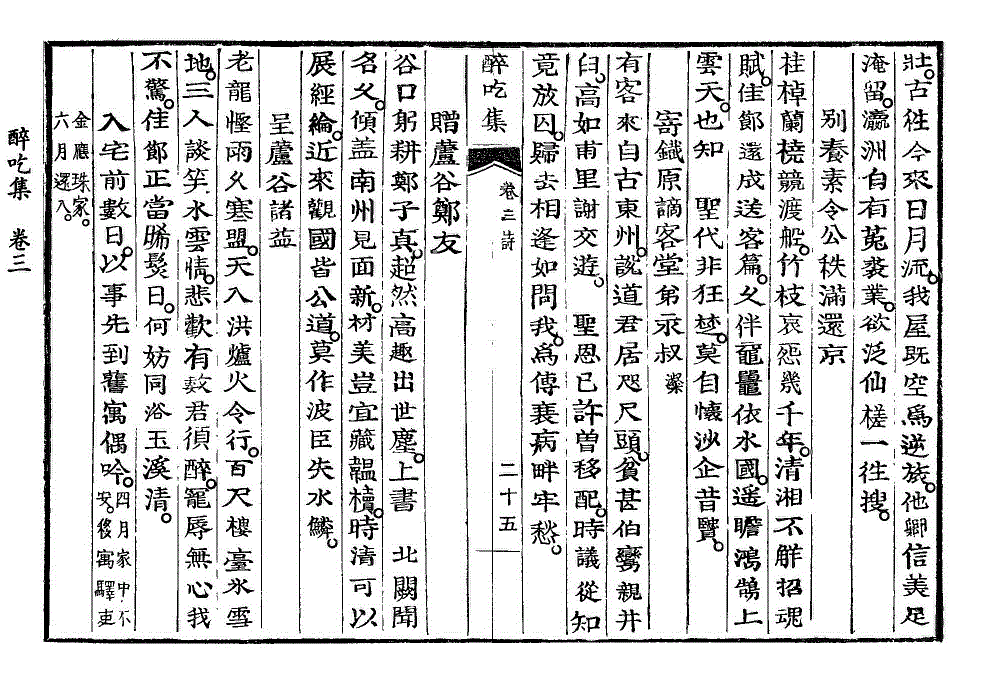 壯古徃今來日月流我屋旣空爲逆旅他鄕信美足
淹留瀛洲自有菟裘業欲泛仙槎一徃搜
别養素令公秩滿還京
桂棹蘭橈競渡船竹枝哀怨幾千年淸湘不觧招魂
賦佳節還成送客篇久伴黿鼉依水國遥瞻鴻鵠上
雲天也知 聖代非狂楚莫自懷沙企昔賢
寄鐵原謫客堂弟永叔粲
有客來自古東州說道君居咫尺頭貧甚伯鸞親井
臼高如甫里謝交遊 聖恩已許曾移配時議從知
竟放囚歸去相逢如問我爲傳衰病畔牢愁
醉吃集 卷三 詩 二十五
贈蘆谷鄭友
谷口躬耕鄭子真超然高趣出世塵上書 北闕聞
名久傾盖南州見面新材美豈宜藏韞櫝時淸可以
展經綸近來觀國皆公道莫作波臣失水鱗
呈蘆谷諸益
老龍慳雨久寒盟天入洪爐火令行百尺樓臺氷雪
地三人談笑水雲情悲歡有數君須醉寵辱無心我
不驚佳節正當晞髮日何妨同浴玉溪淸
入宅前數日以事先到舊寓偶吟四月家中不安後寓驛吏
金廳珠家六月還入
醉吃集 卷三